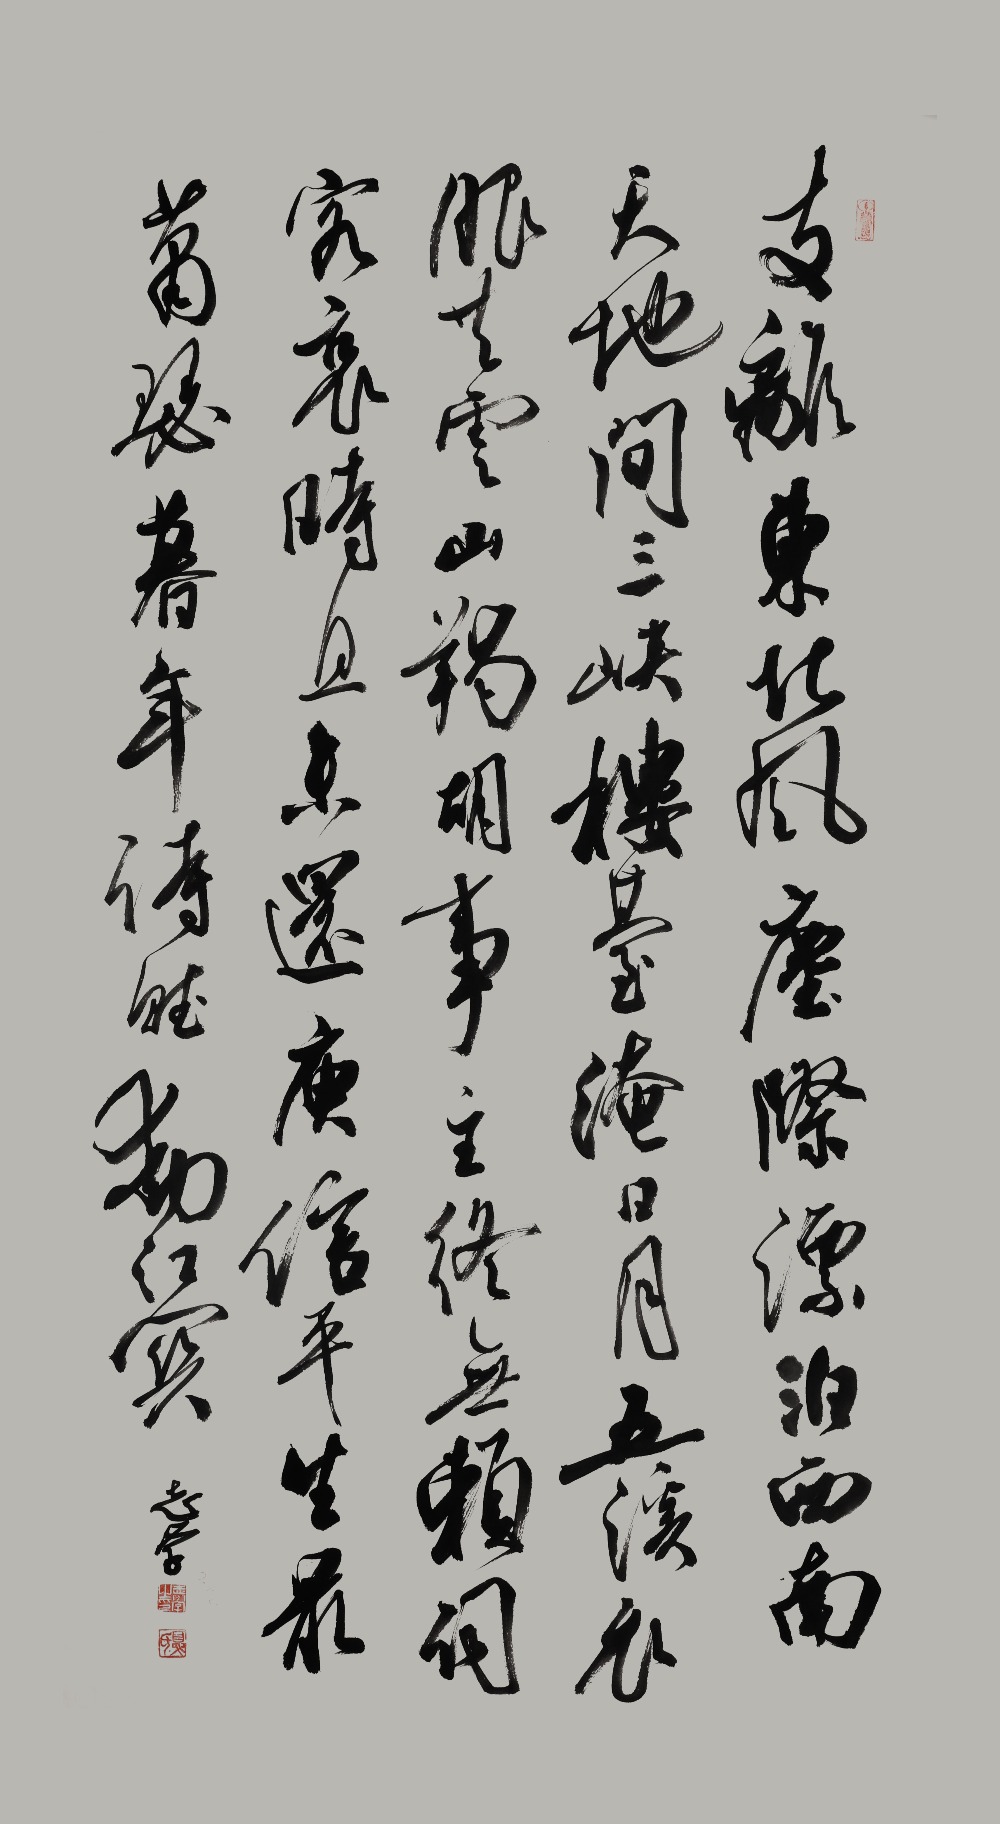 支離東北風塵際漂泊西南
天地間三峽樓臺淹日月五溪衣
服共雲山羯胡事主終無賴詞
客哀時且未還庾信平生最
蕭瑟暮年詩賦動江關
志学